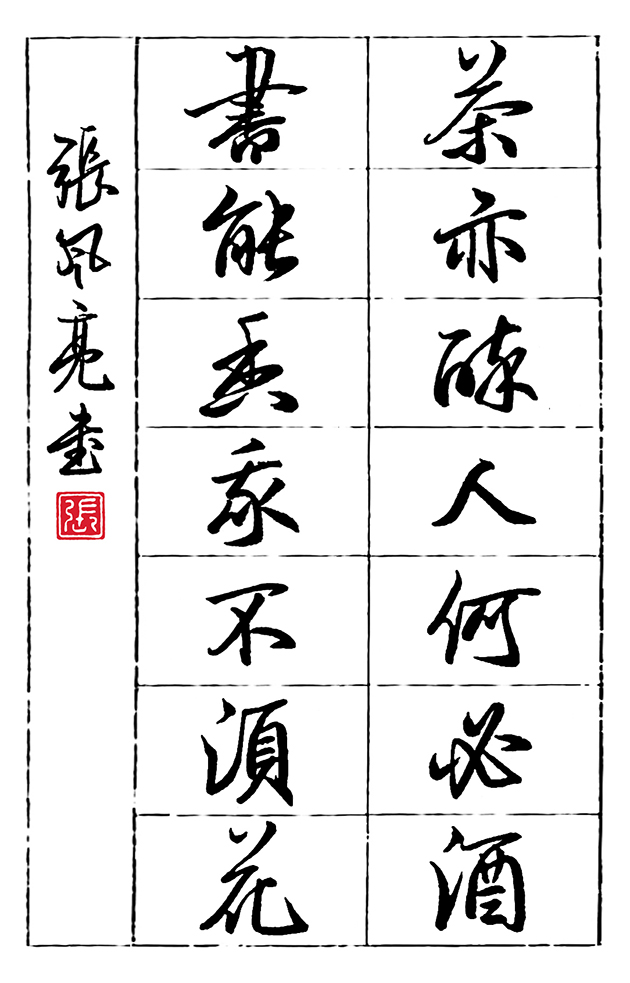 茶亦醉人何必酒
書能香我不須花
張風亮書
張